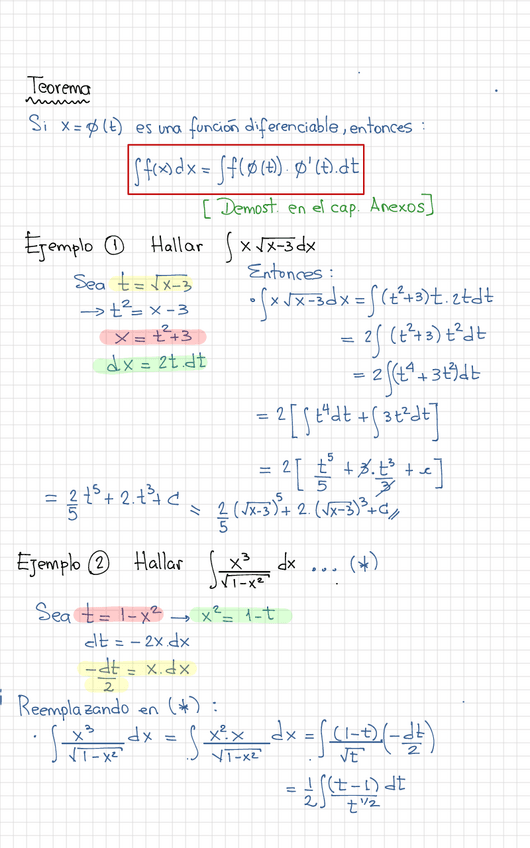 Teorema
Si x = ϕ(t) es una función diferenciable, entonces :
∫f(x)dx = ∫f(ϕ(t)). ϕ'(t).dt
[ Demost. en el cap. Anexos]
Ejemplo ① Hallar ∫ x √x-3 dx
Sea t = √x-3
→ t² = x - 3
x = t²+3
dx = 2t.dt
Entonces :
• ∫ x √x-3 dx = ∫(t²+3)t. 2tdt
= 2∫ (t²+3) t² dt
= 2∫(t⁴ + 3t²)dt
= 2[ ∫ t⁴dt + ∫ 3t²dt]
= 2[ t⁵/5 + 3.t³/3 + c ]
= 2/5 t⁵ + 2.t³ + C = 2/5 (√x-3)⁵ + 2.(√x-3)³ + C //
Ejemplo ② Hallar ∫ x³/√1-x² dx ... (*)
Sea t = 1-x² → x² = 1-t
dt = -2x.dx
-dt/2 = x.dx
Reemplazando en (*) :
• ∫ x³/√1-x² dx = ∫ x².x/√1-x² dx = ∫ (1-t)/√t (-dt/2)
= 1/2 ∫ (t-1) dt/t^1/2